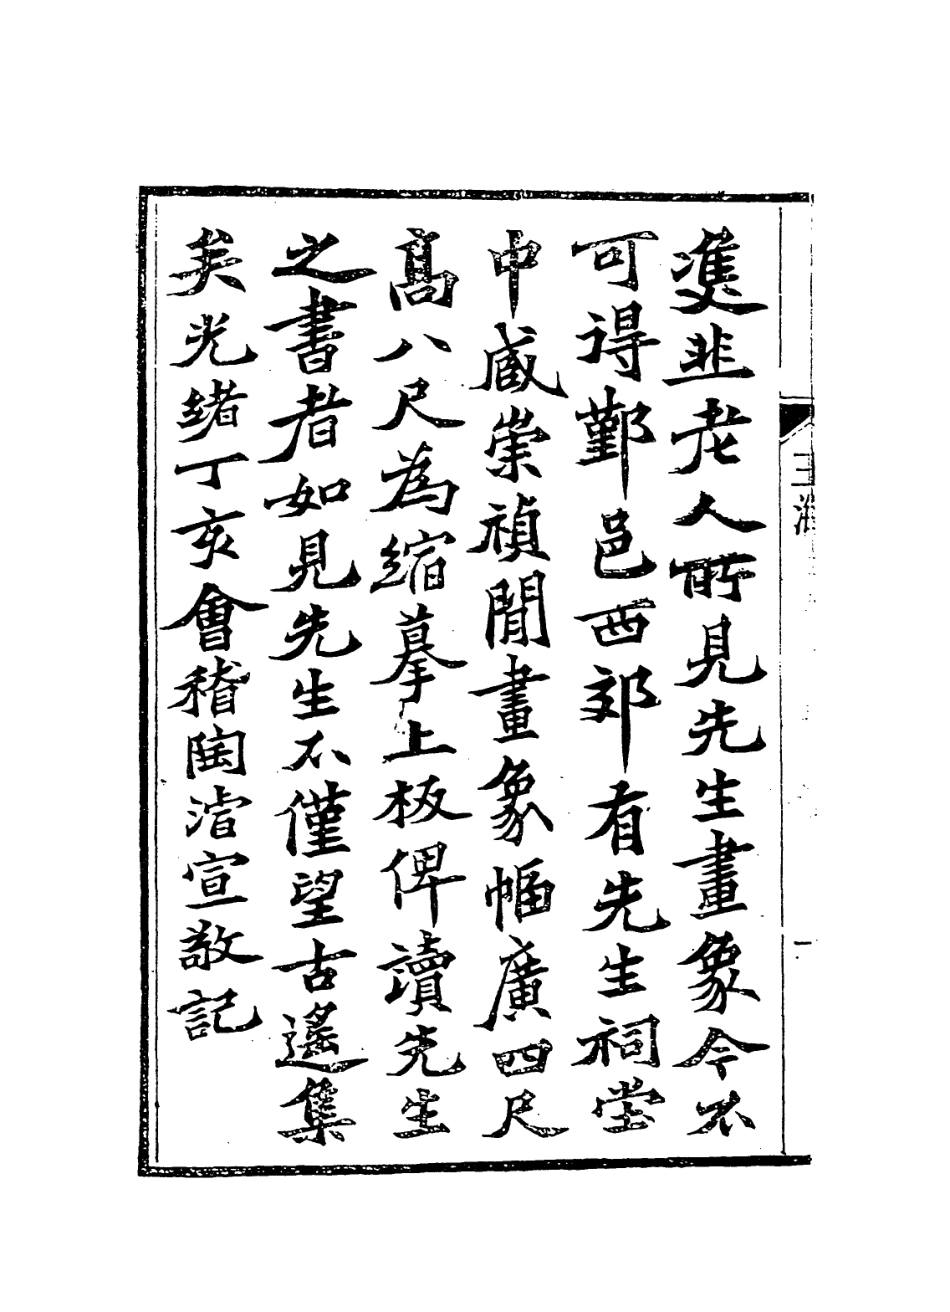 雙韭老人所見先生畫象今不
可得鄞邑西郊有先生祠堂
中藏崇禎閒畫象幅廣四尺
高八尺為縮摹上板俾讀先生
之書者如見先生不僅望古遙集
矣光緒丁亥會稽陶濬宣敬記